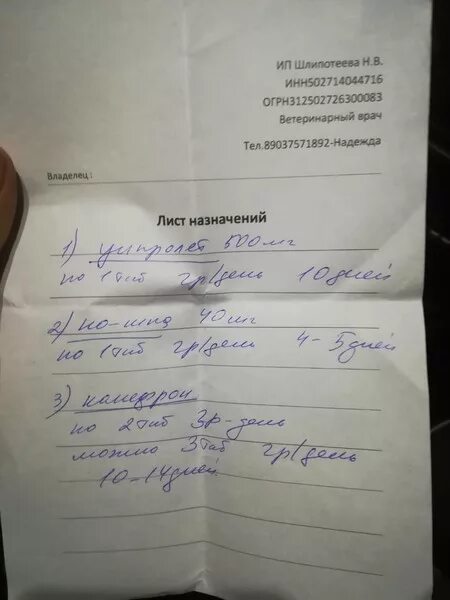 ИП Шлипотеева Н.В.
ИНН502714044716
ОГРН312502726300083
Ветеринарный врач
Тел.89037571892-Надежда
Владелец :
Лист назначений
1) ципролет 500мг
по 1таб 2р/день 10дней
2) но-шпа 40мг
по 1таб 2р/день 4-5дней
3) канефрон
по 2таб 3р-день
можно 3таб 2р/день
10-14дней